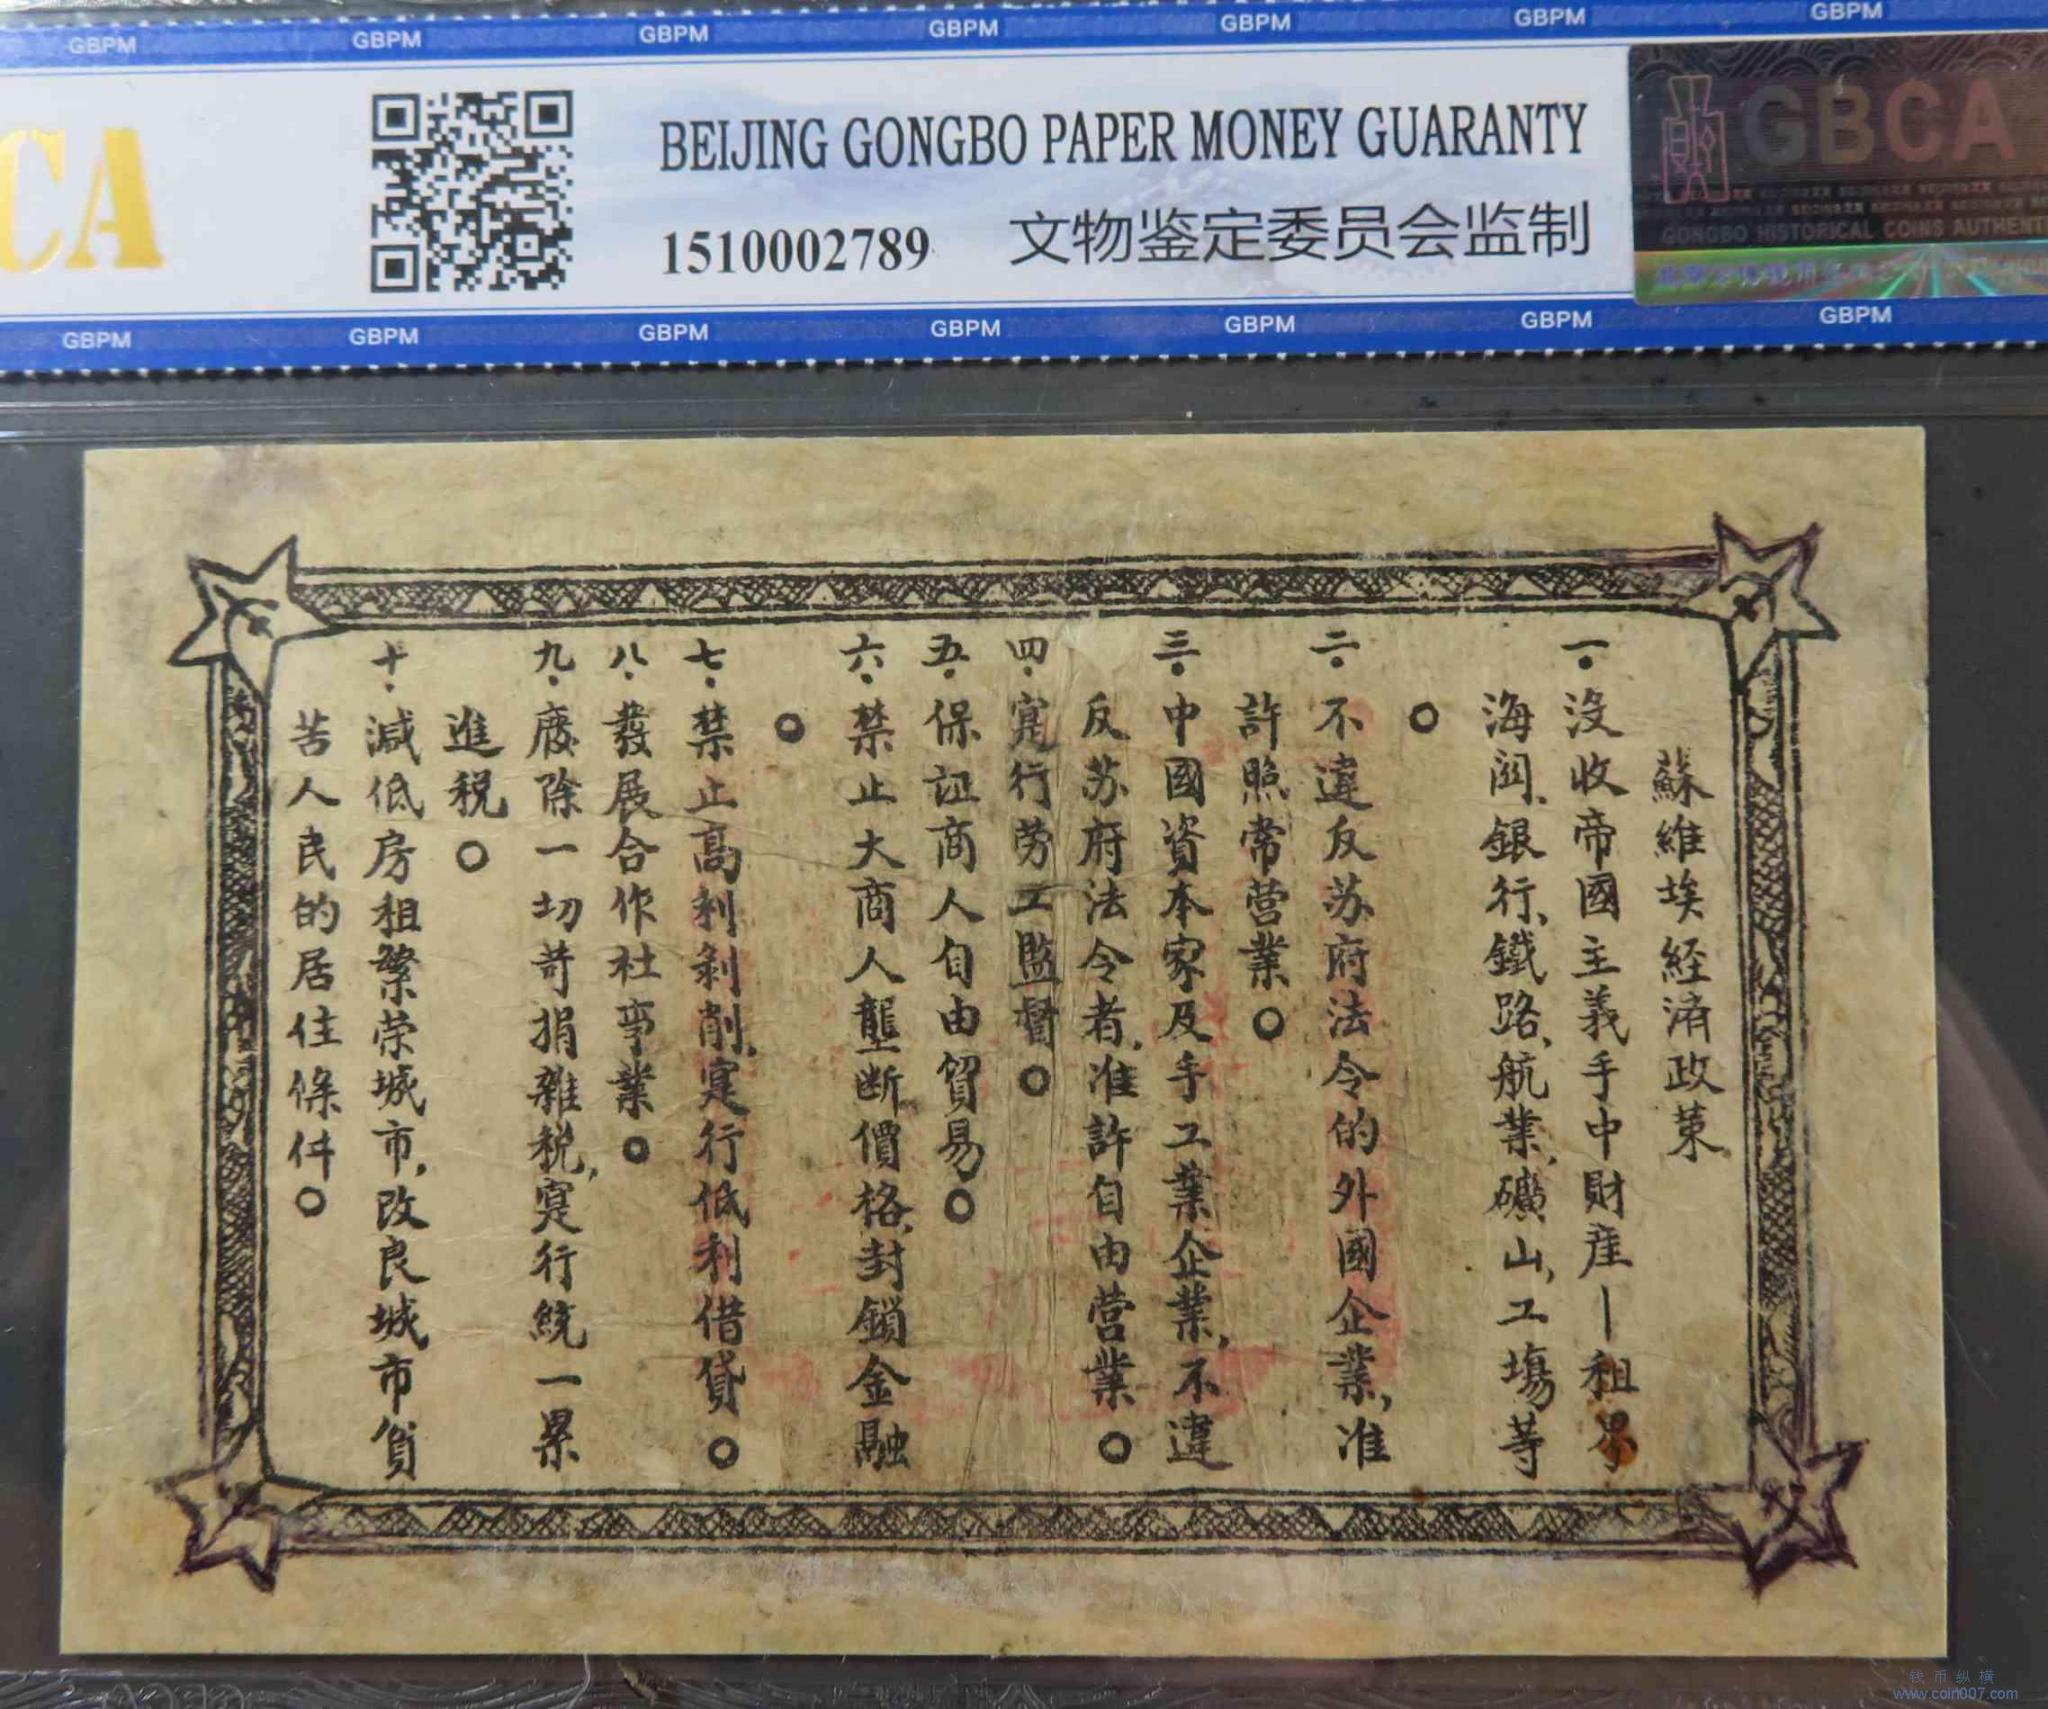 GBPM GBPM GBPM GBPM GBPM GBPM GBPM
CA
BEIJING GONGBO PAPER MONEY GUARANTY
1510002789 文物鉴定委员会监制
GBCA
GONGBO HISTORICAL COINS AUTHENTI
GBPM GBPM GBPM GBPM GBPM GBPM GBPM
蘇維埃経済政策
一.没收帝國主義手中財産—租界
海関、銀行、鐵路、航業、礦山、工塲等
。
二.不違反苏府法令的外國企業,准
許照常営業。
三.中國資本家及手工業企業,不違
反苏府法令者,准許自由营業。
四.寔行劳工監督。
五.保証商人自由貿易。
六.禁止大商人壟断價格,封鎖金融
。
七.禁止高利剥削,寔行低利借貸。
八.發展合作社事業。
九.廢除一切苛捐雜税,寔行統一累
進税。
十.減低房租繁荣城市,改良城市貧
苦人民的居住條件。
钱币纵横
www.coin007.com